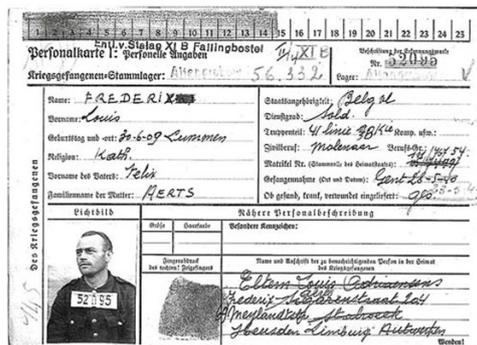 15 16 17 18 19 20 21 22 23
Entl. v. Stalag XI B Fallingbostel
Personalkarte I: Personelle Angaben
Beschriftung der Erkennungsmarke
Kriegsgefangenen-Stammlager: 56.332
Nr. 52095
Lager:
Des Kriegsgefangenen
Name: FREDERIX
Vorname: Louis
Geburtstag und -ort: 30-6-09 Lummen
Religion: Kath.
Vorname des Vaters: Felix
Familienname der Mutter: AERTS
Staatsangehörigkeit:
Dienstgrad: Sold.
Truppenteil: 41 linie Komp. usw.:
Zivilberuf: molenaar Berufs-Gr.:
Matrikel Nr. (Stammrolle des Heimatstaates):
Gefangennahme (Ort und Datum): Gent 23-5-40
Ob gesund, krank, verwundet eingeliefert:
Lichtbild
Nähere Personalbeschreibung
Größe Haarfarbe Besondere Kennzeichen:
Fingerabdruck des rechten! Zeigefingers
Name und Anschrift der zu benachrichtigenden Person in der Heimat des Kriegsgefangenen
52095
Eltern Louis
Frederix
Heusden Limburg Antwerpen
Wenden!